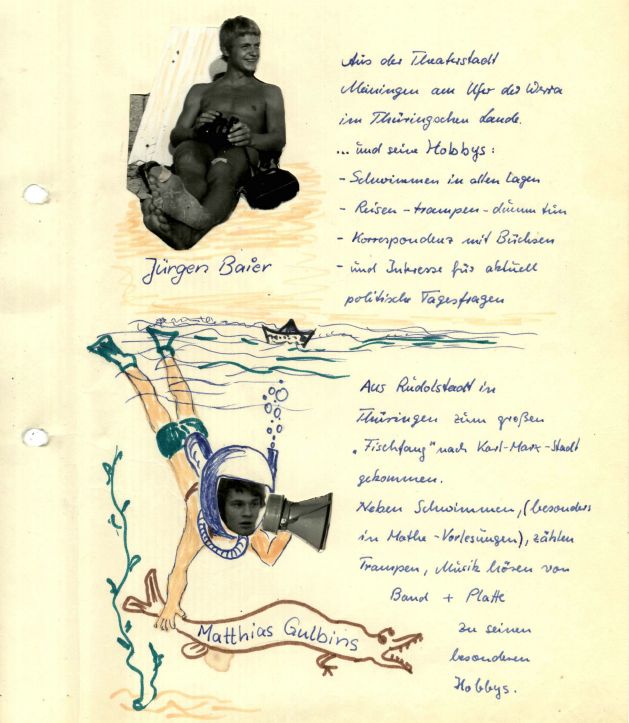 Aus der Theaterstadt
Meiningen am Ufer der Werra
im Thüringschen Lande.
... und seine Hobbys:
- Schwimmen in allen Lagen
- Reisen - trampen - dumm tun
- Korrespondenz mit Büchsen
- und Interesse für aktuell
politische Tagesfragen
Jürgen Baier
Aus Rudolstadt in
Thüringen zum großen
„Fischfang" nach Karl-Marx-Stadt
gekommen.
Neben Schwimmen, (besonders
in Mathe-Vorlesungen), zählen
Trampen, Musik hören von
Band + Platte
zu seinen
besonderen
Hobbys.
Matthias Gulbins